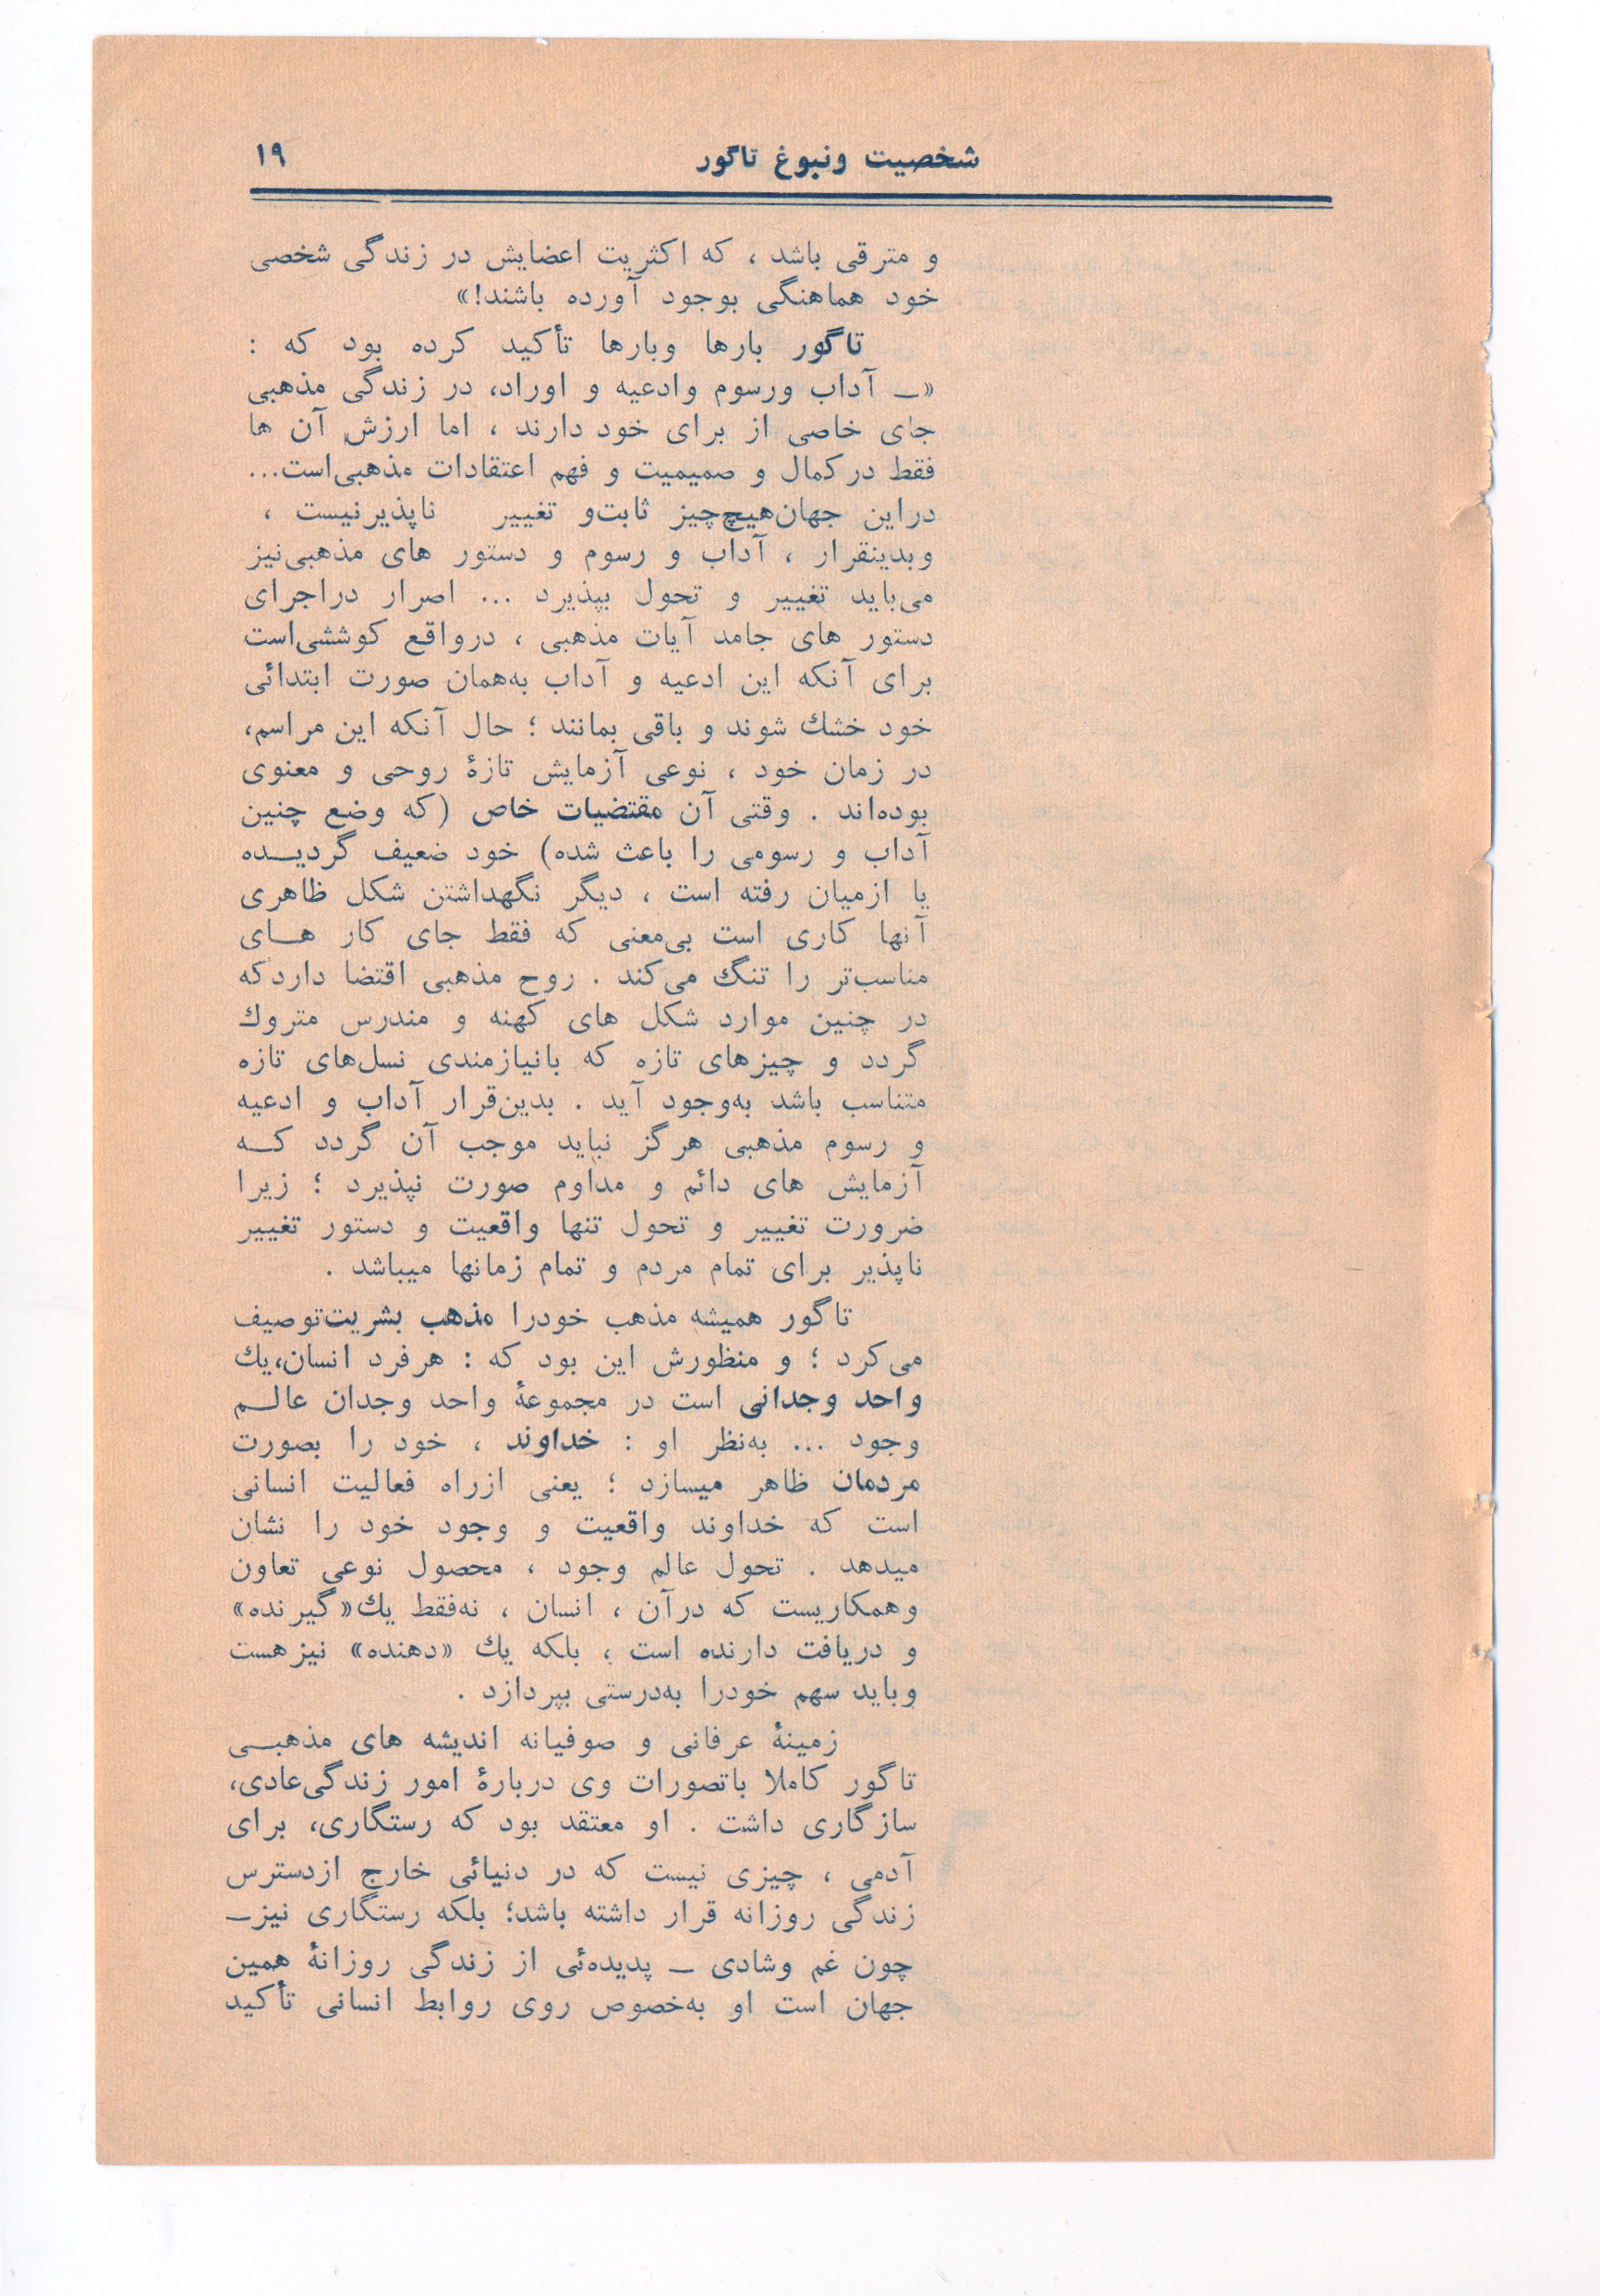 شخصیت ونبوغ تاگور ۱۹
و مترقی باشد ، که اکثریت اعضایش در زندگی شخصی
خود هماهنگی بوجود آورده باشند!»
تاگور بارها وبارها تأکید کرده بود که :
«ـ آداب ورسوم وادعیه و اوراد، در زندگی مذهبی
جای خاصی از برای خود دارند ، اما ارزش آن ها
فقط درکمال و صمیمیت و فهم اعتقادات مذهبی‌است...
دراین جهان‌هیچ‌چیز ثابت‌و تغییر ناپذیرنیست ،
وبدینقرار ، آداب و رسوم و دستور های مذهبی‌نیز
می‌باید تغییر و تحول بپذیرد ... اصرار دراجرای
دستور های جامد آیات مذهبی ، درواقع کوششی‌است
برای آنکه این ادعیه و آداب به‌همان صورت ابتدائی
خود خشك شوند و باقی بمانند ؛ حال آنکه این مراسم،
در زمان خود ، نوعی آزمایش تازهٔ روحی و معنوی
بوده‌اند . وقتی آن مقتضیات خاص (که وضع چنین
آداب و رسومی را باعث شده) خود ضعیف گردیـده
یا ازمیان رفته است ، دیگر نگهداشتن شکل ظاهری
آنها کاری است بی‌معنی که فقط جای کار هـای
مناسب‌تر را تنگ می‌کند . روح مذهبی اقتضا داردکه
در چنین موارد شکل های کهنه و مندرس متروك
گردد و چیزهای تازه که بانیازمندی نسل‌های تازه
متناسب باشد به‌وجود آید . بدین‌قرار آداب و ادعیه
و رسوم مذهبی هرگز نباید موجب آن گردد کـه
آزمایش های دائم و مداوم صورت نپذیرد ؛ زیرا
ضرورت تغییر و تحول تنها واقعیت و دستور تغییر
ناپذیر برای تمام مردم و تمام زمانها میباشد .
تاگور همیشه مذهب خودرا مذهب بشریت‌توصیف
می‌کرد ؛ و منظورش این بود که : هرفرد انسان،یك
واحد وجدانی است در مجموعهٔ واحد وجدان عالـم
وجود ... به‌نظر او : خداوند ، خود را بصورت
مردمان ظاهر میسازد ؛ یعنی ازراه فعالیت انسانی
است که خداوند واقعیت و وجود خود را نشان
میدهد . تحول عالم وجود ، محصول نوعی تعاون
وهمکاریست که درآن ، انسان ، نه‌فقط یك«گیرنده»
و دریافت دارنده است ، بلکه یك «دهنده» نیزهست
وباید سهم خودرا به‌درستی بپردازد .
زمینهٔ عرفانی و صوفیانه اندیشه های مذهبـی
تاگور کاملا باتصورات وی دربارهٔ امور زندگی‌عادی،
سازگاری داشت . او معتقد بود که رستگاری، برای
آدمی ، چیزی نیست که در دنیائی خارج ازدسترس
زندگی روزانه قرار داشته باشد؛ بلکه رستگاری نیزـ
چون غم وشادی ـ پدیده‌ئی از زندگی روزانهٔ همین
جهان است او به‌خصوص روی روابط انسانی تأکید